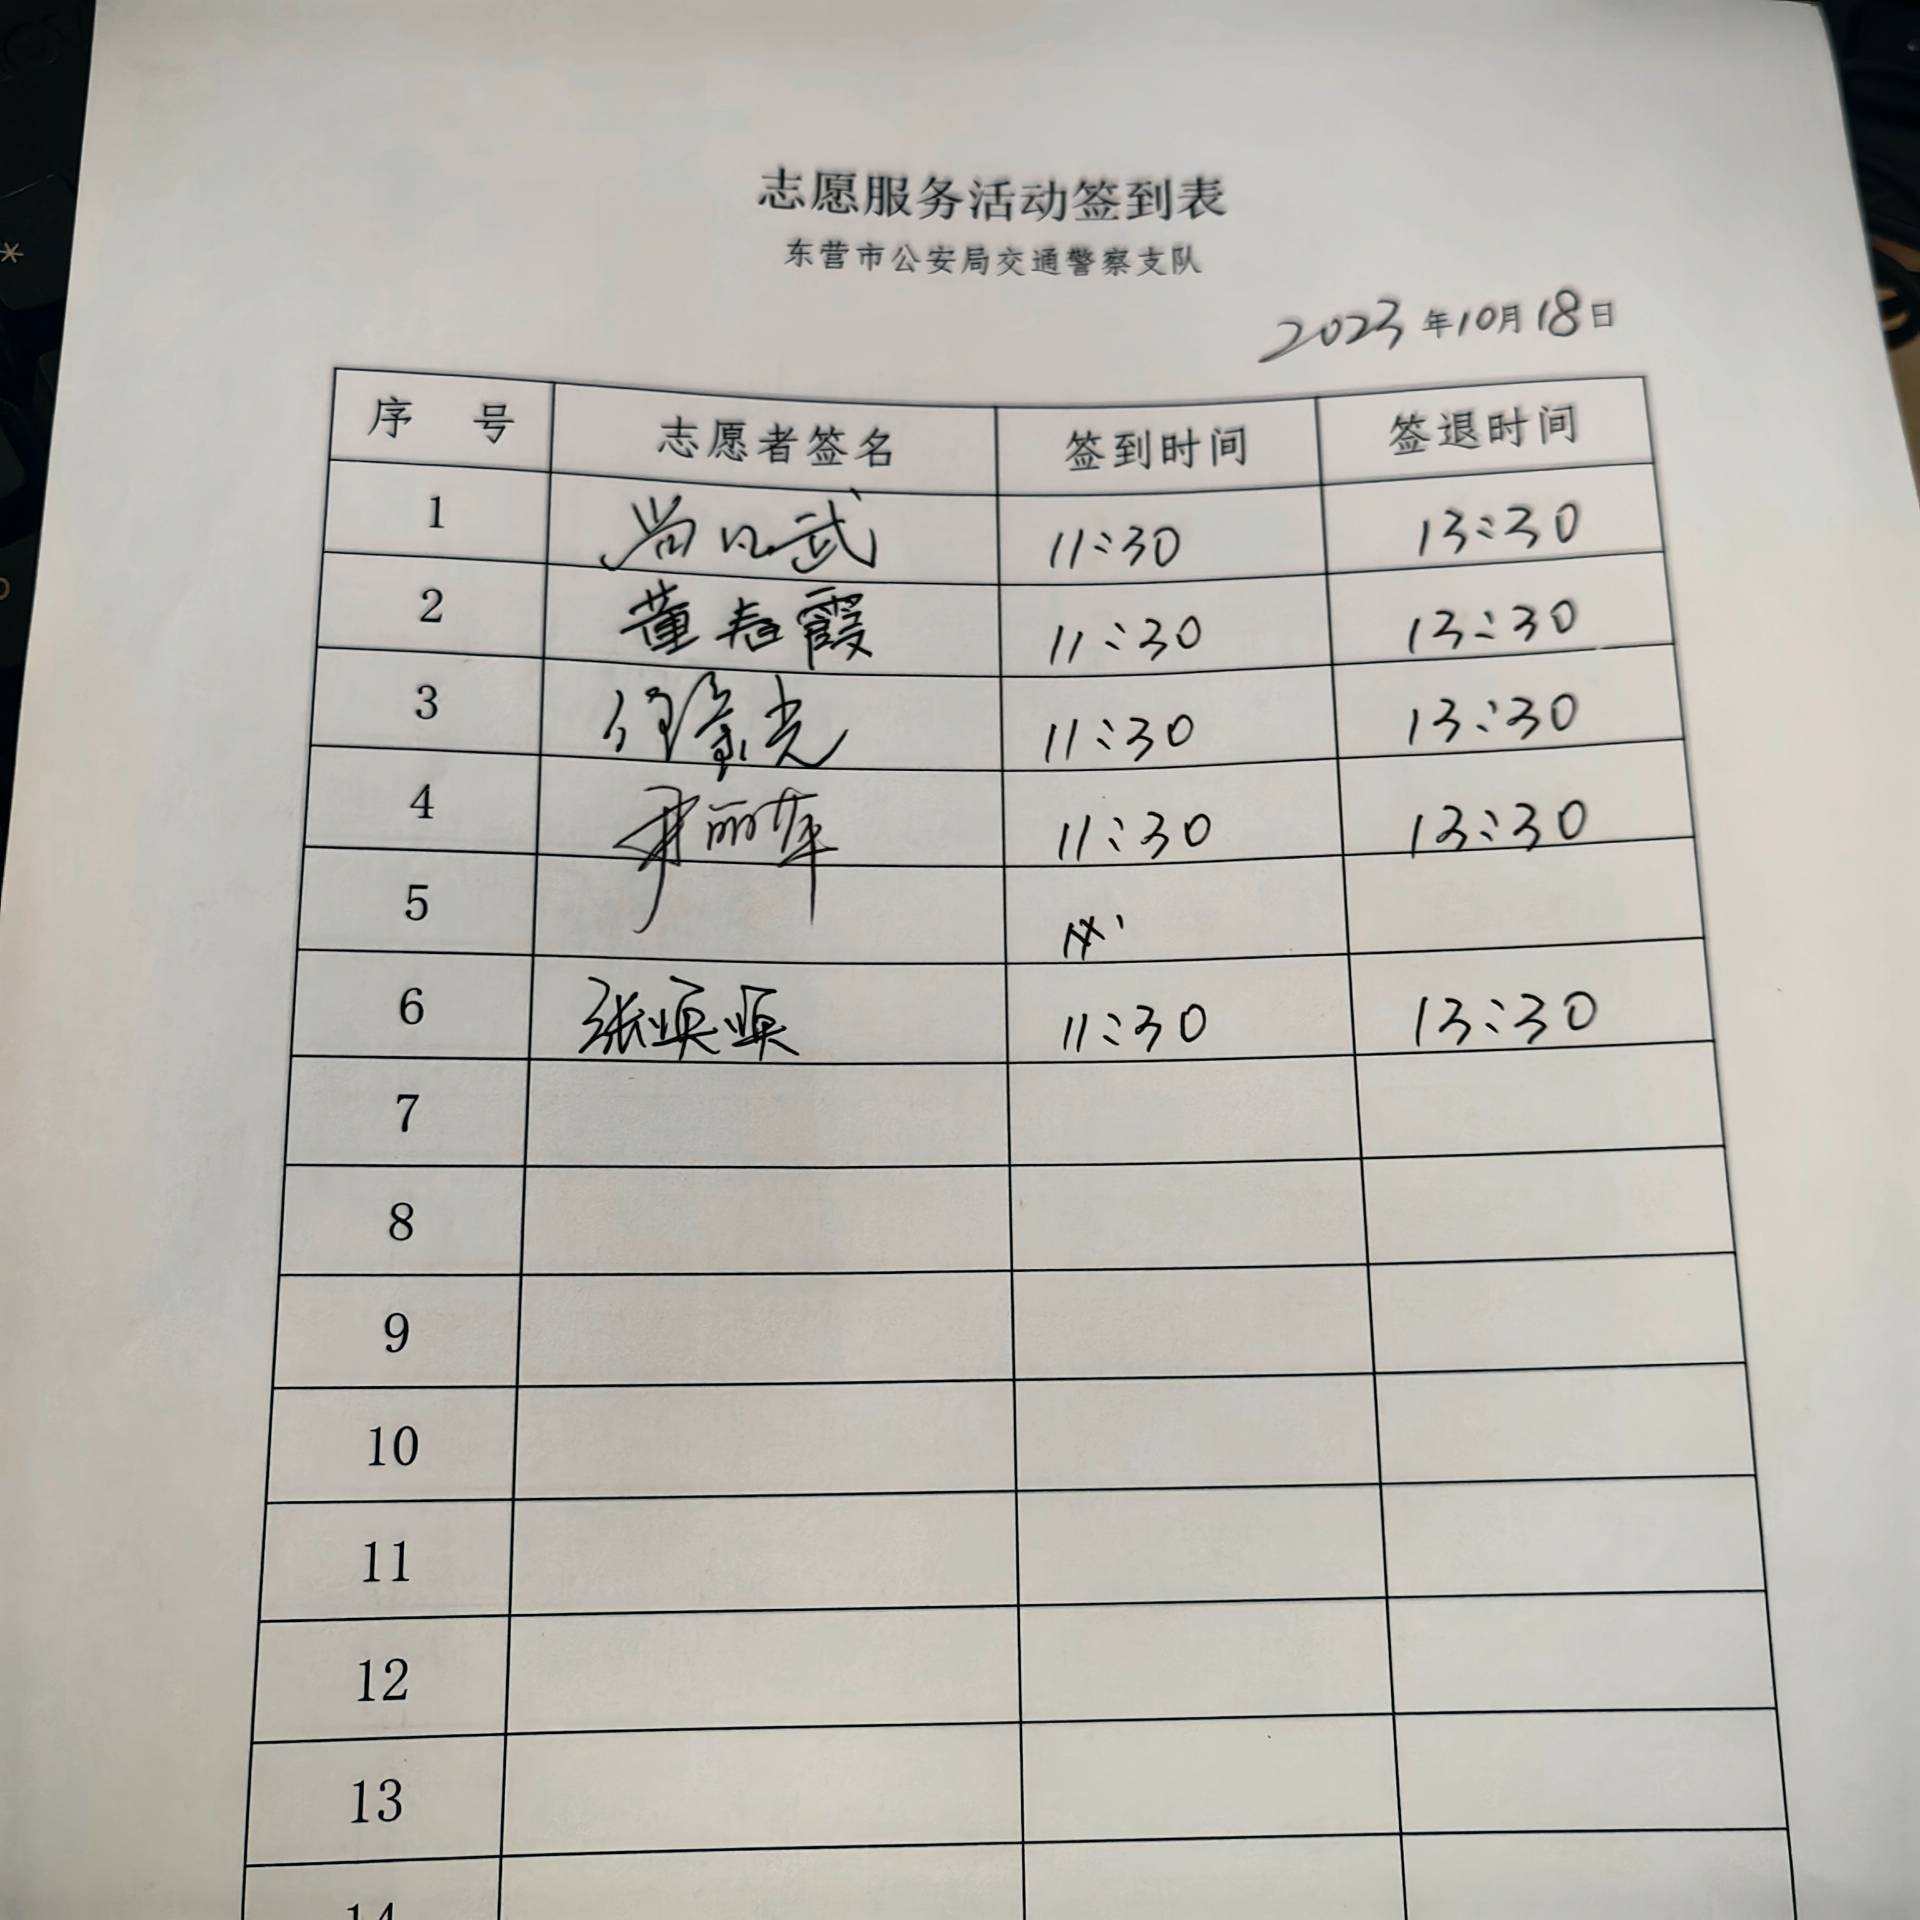 志愿服务活动签到表
东营市公安局交通警察支队
2023年10月18日
序 号 志愿者签名 签到时间 签退时间
1 尚 武 11:30 13:30
2 董春霞 11:30 13:30
3 光 11:30 13:30
4 尹丽萍 11:30 13:30
5
6 张 11:30 13:30
7
8
9
10
11
12
13
14